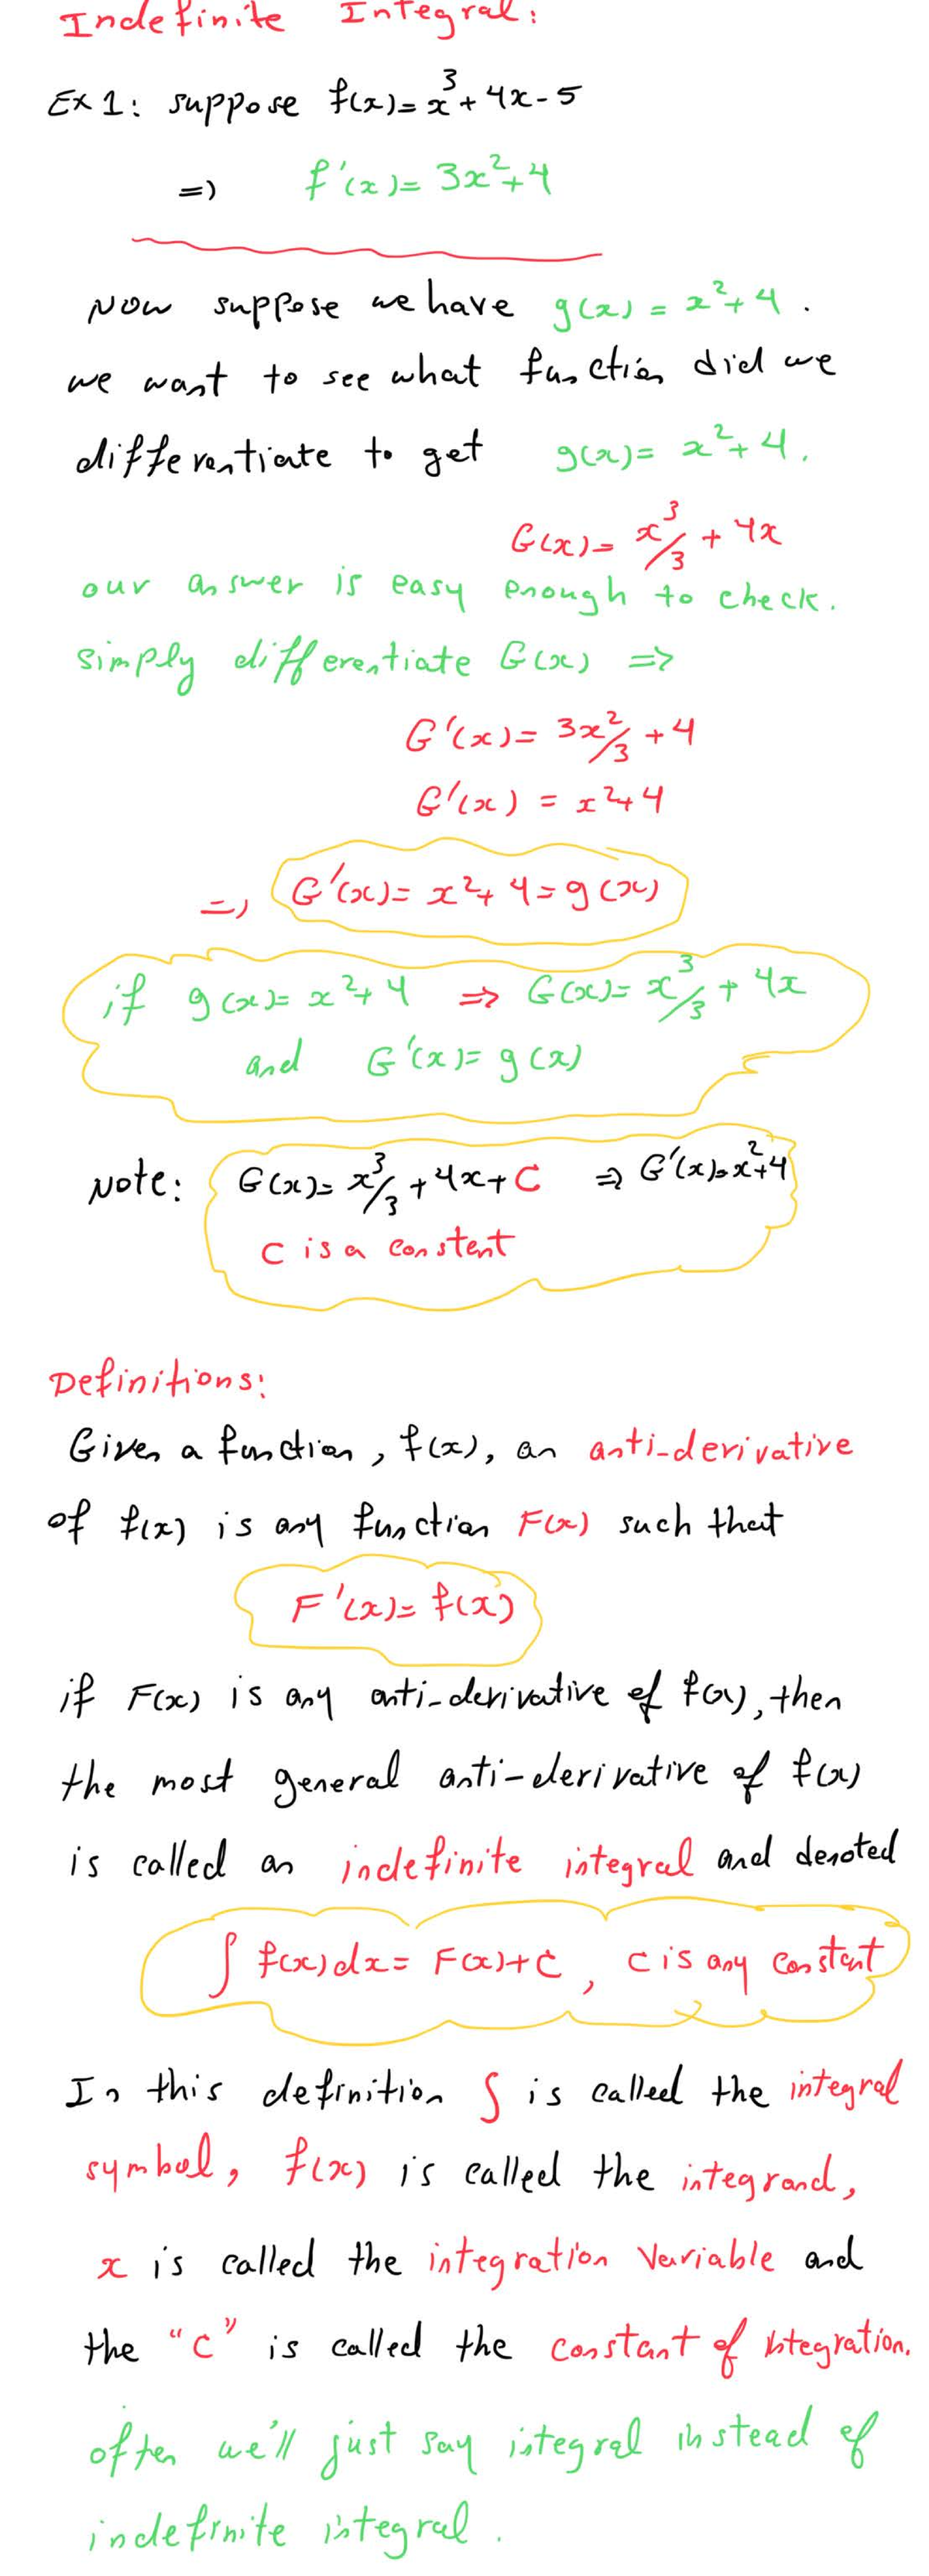 Indefinite Integral:
Ex 1: suppose f(x)= x³+ 4x-5
=> f'(x)= 3x²+4
Now suppose we have g(x) = x²+ 4.
we want to see what function did we
differentiate to get g(x)= x²+ 4.
G(x)= x³/3 + 4x
our answer is easy enough to check.
simply differentiate G(x) =>
G'(x)= 3x²/3 + 4
G'(x) = x²+4
=> G'(x)= x²+ 4= g(x)
if g(x)= x²+ 4 => G(x)= x³/3 + 4x
and G'(x)= g(x)
Note: G(x)= x³/3 + 4x+ C => G'(x)= x²+4
C is a constant
Definitions:
Given a function, f(x), an anti-derivative
of f(x) is any function F(x) such that
F'(x)= f(x)
if F(x) is any anti-derivative of f(x), then
the most general anti-derivative of f(x)
is called an indefinite integral and denoted
∫ f(x)dx= F(x)+C, C is any constant
In this definition ∫ is called the integral
symbol, f(x) is called the integrand,
x is called the integration variable and
the "C" is called the constant of integration.
often we'll just say integral instead of
indefinite integral.